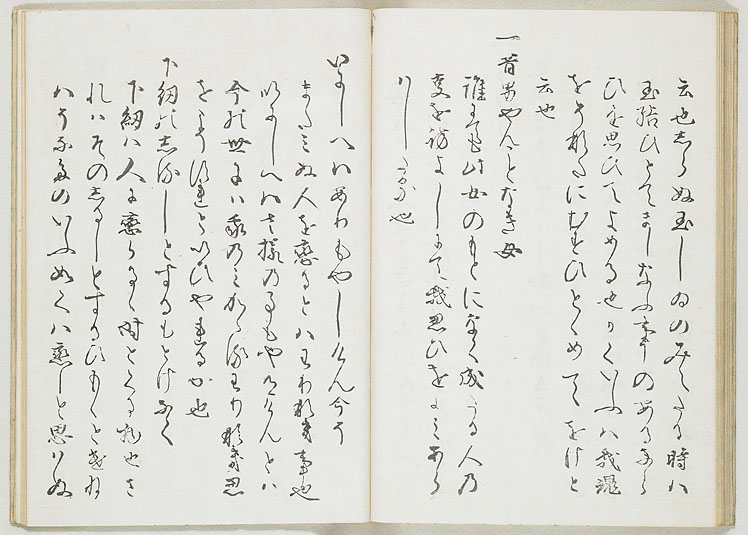 云也しらぬ玉しゐのみえたる時ハ
玉結ひとてましなふ事のあるなら
ひを思ひてよめる也かくいふハ我魂
をう都にむすひとゝめてをけと
云也
一昔男やんことなき女
誰にても此女のもとになく成たる人の
事を訪よしにて我思ひをよみあら
はしたる也
いにしへはありもやしけん今そ
またみぬ人を恋るとハわりなき事也
いにしへハさ様の事もや有けんとハ
今の世にハ我のみかゝるわりなき思
をこそすれといひやれる哥也
下紐のしるしとするもとけなく
下紐ハ人に恋らるゝ時とくる物也さ
れハそのしるしとするひもゝとけね
ハ
ハ恋しと思はぬ